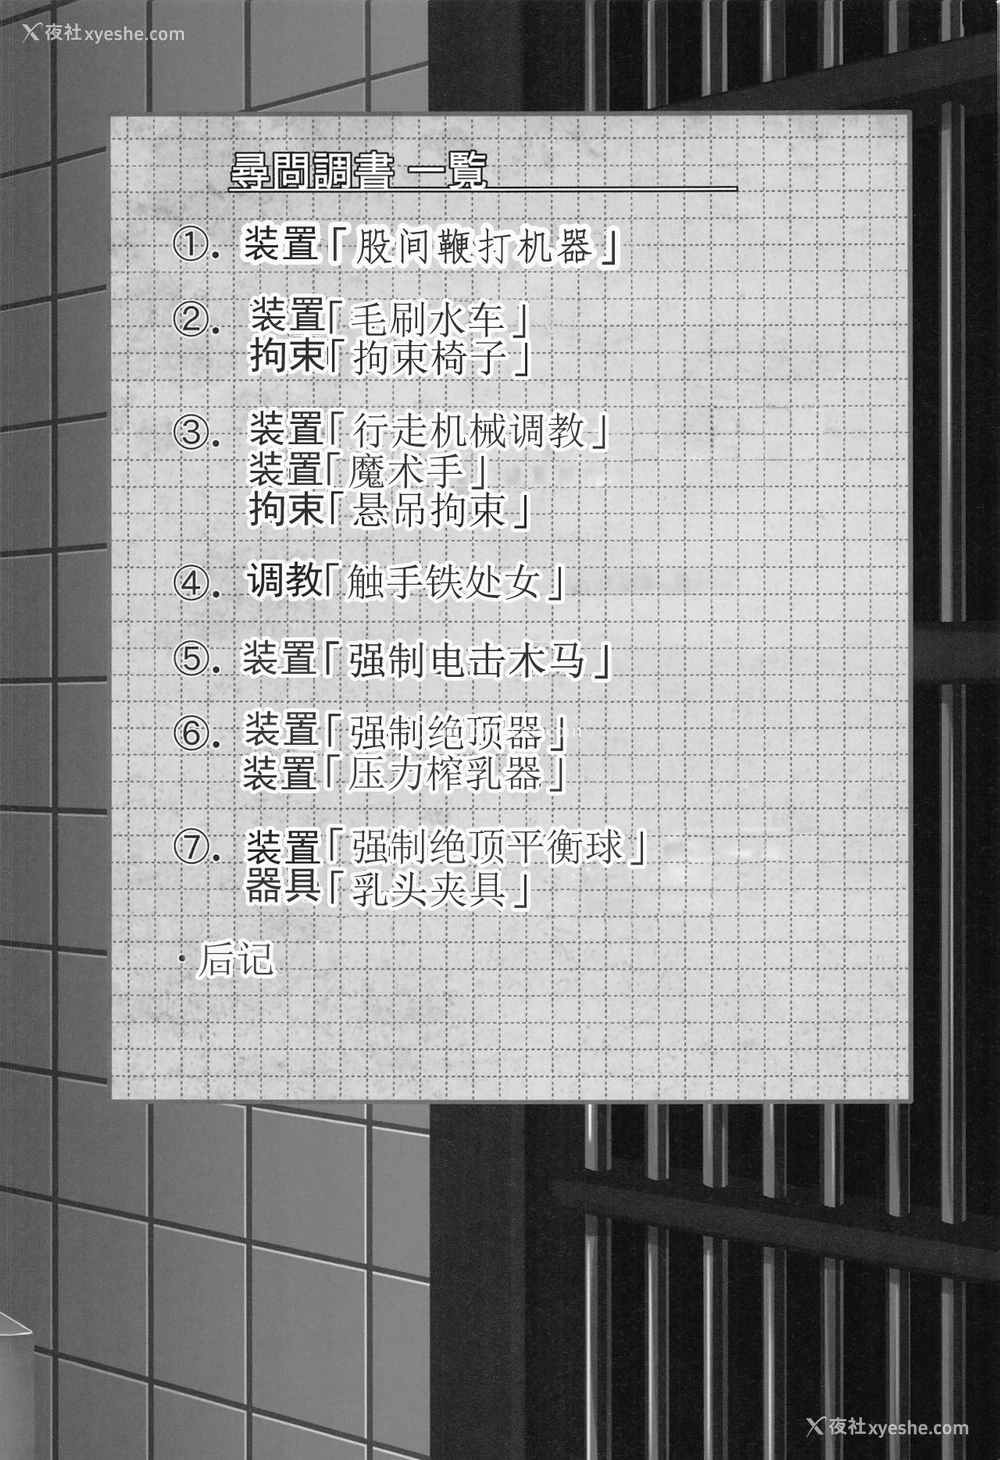 夜社xyeshe.com
尋問調書 一覧
①. 装置「股间鞭打机器」
②. 装置「毛刷水车」
拘束「拘束椅子」
③. 装置「行走机械调教」
装置「魔术手」
拘束「悬吊拘束」
④. 调教「触手铁处女」
⑤. 装置「强制电击木马」
⑥. 装置「强制绝顶器」
装置「压力榨乳器」
⑦. 装置「强制绝顶平衡球」
器具「乳头夹具」
·后记
夜社xyeshe.com